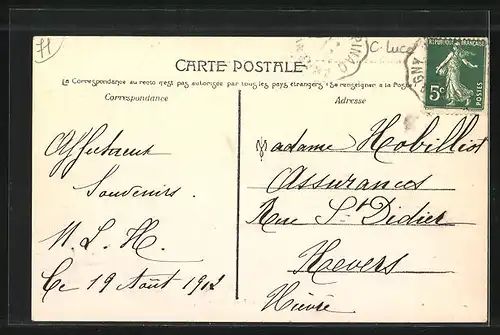 71
C. Luce
CARTE POSTALE
La Correspondance au recto n'est pas autorisée par tous les pays étrangers (Se renseigner à la Poste)
Correspondance
Adresse
RÉPUBLIQUE FRANÇAISE
5c
POSTES
Affectueux
Souvenirs.
M. L. H.
Ce 19 Août 1912
Madame Hobilliot
Assurances
Rue St Didier
Nevers
Nièvre